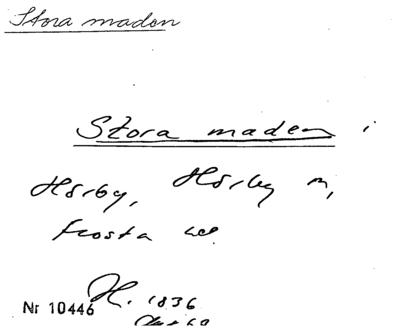 Stora maden
Stora maden i
Hörby, Hörby
Frosta
Nr 10446 H. 1836